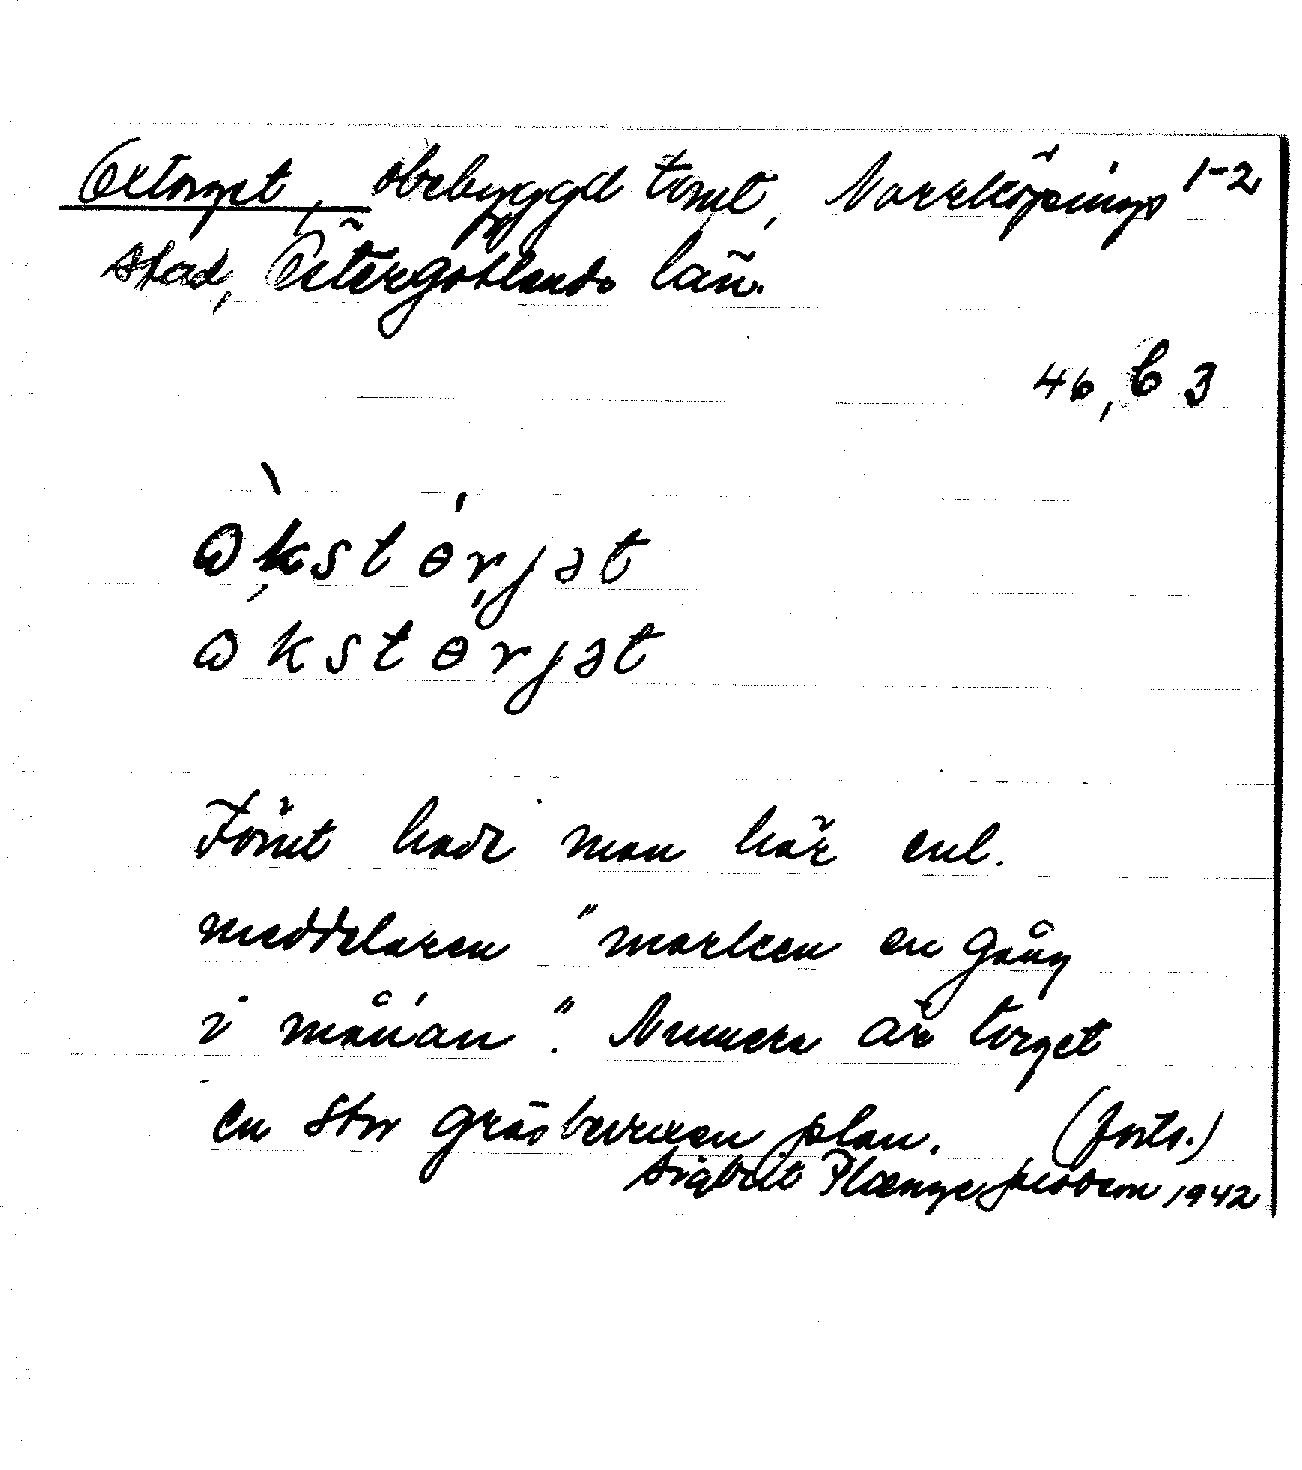 Oxtorget, obebyggd tomt, Norrköpings 1-2
stad, Östergötlands län.
46, C 3
ɷ̀kstɵ́rjət
ɷkstɵrjət
Förut hade man här enl.
meddelaren "marken en gång
i månan". Numera är torget
en stor gräsbevuxen plan. (forts.)
Sigbrit Plænge Jacobson 1942